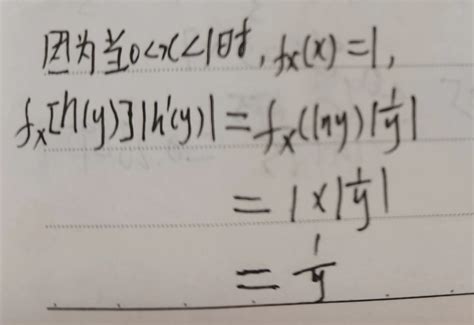 因为当0<x<1时, fx(x)=1,
fx[h(y)]|h'(y)|=fx(lny)|1/y|
=1×|1/y|
=1/y